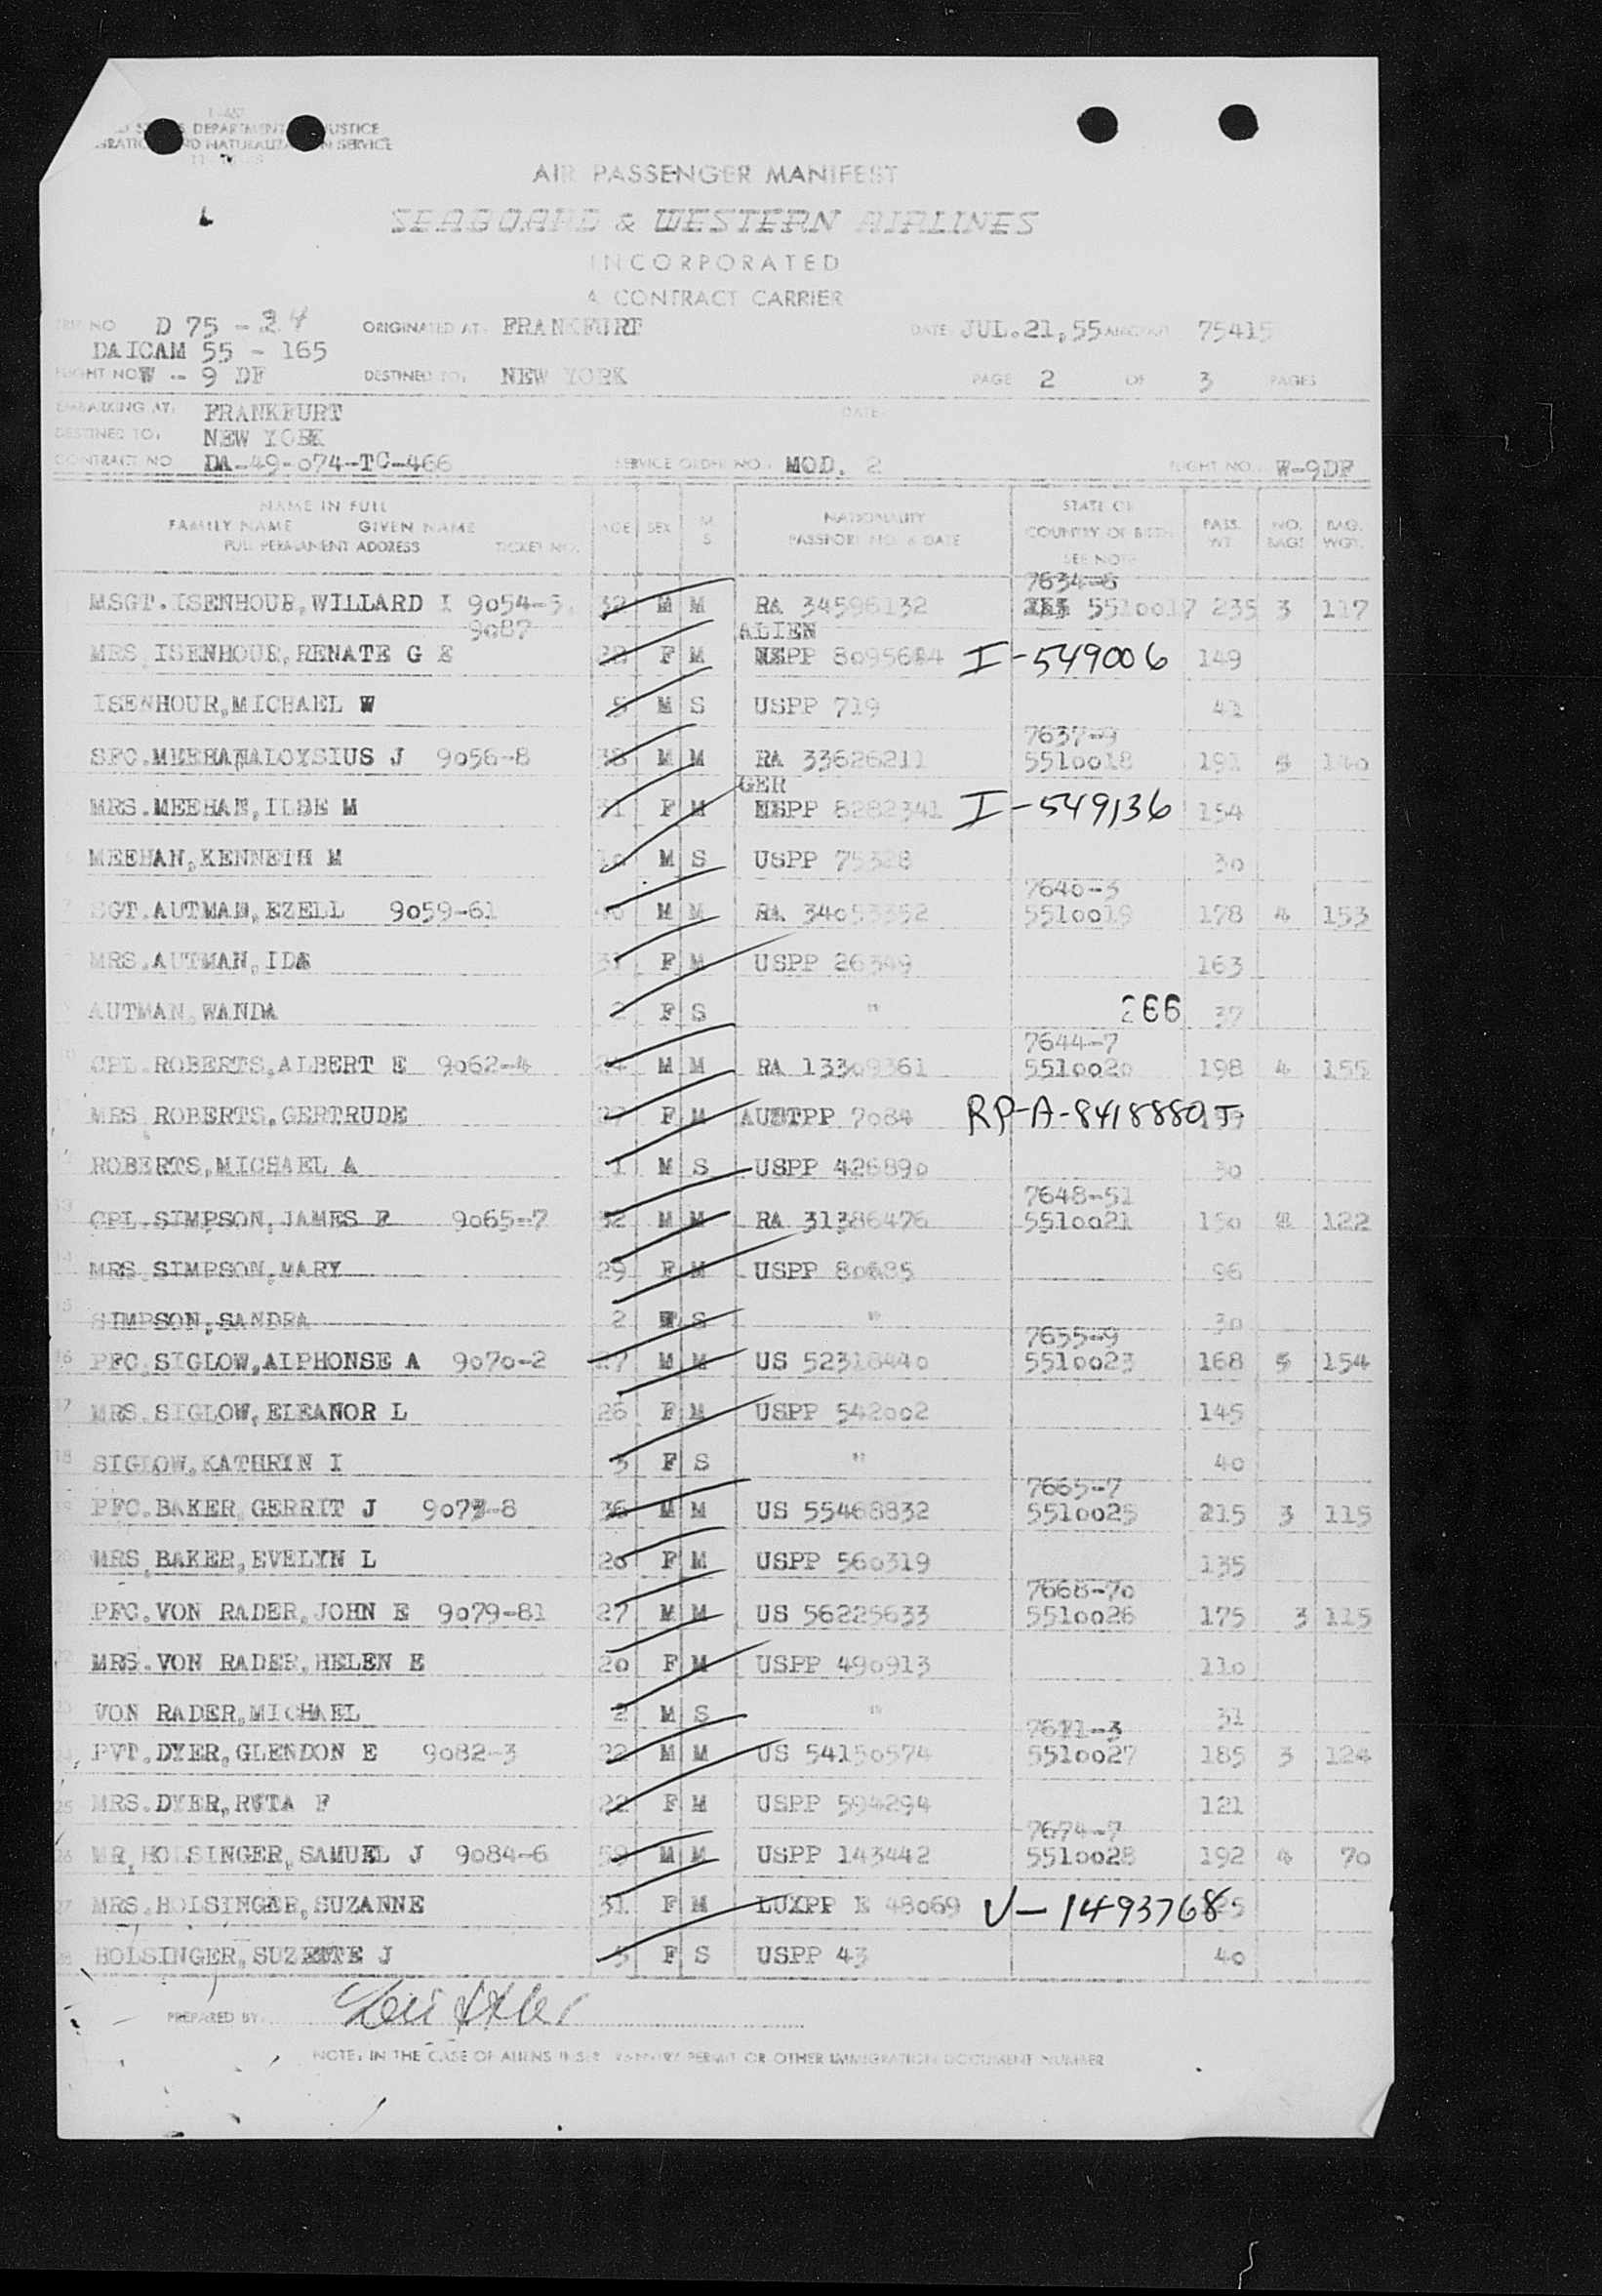 S DEPARTMENT JUSTICE
AND NATURALIZATION SERVICE
AIR PASSENGER MANIFEST
SEABOARD & WESTERN AIRLINES
INCORPORATED
A CONTRACT CARRIER
TRIP NO D 75 - 24 ORIGINATED AT: FRANKFURT DATE JUL.21,55 AIRCRAFT 75415
DAICAM 55 - 165
FLIGHT NO W - 9 DF DESTINED TO: NEW YORK PAGE 2 OF 3 PAGES
EMBARKING AT: FRANKFURT DATE
DESTINED TO: NEW YORK
CONTRACT NO DA-49-074-TC-466 SERVICE ORDER NO. MOD. 2 FLIGHT NO. W-9DF
NAME IN FULL STATE OR
FAMILY NAME GIVEN NAME AGE SEX M NATIONALITY COUNTRY OF BIRTH PASS. NO. BAG.
FULL PERMANENT ADDRESS TICKET NO. S PASSPORT NO. & DATE SEE NOTE WT. BAGS WGT.
7634-6
MSGT.ISENHOUR,WILLARD I 9054-5 32 M M RA 34596132 5510017 235 3 117
9087 ALIEN
MRS ISENHOUR,RENATE G E F M PP I-549006 149
ISENHOUR,MICHAEL W M S USPP 719 41
7637-9
SFC.MEEHAN,ALOYSIUS J 9056-8 38 M M RA 33626211 5510018 191 5 140
GER
MRS.MEEHAN,ILDE M 31 F M PP 8282341 I-549136 154
MEEHAN,KENNETH M M S USPP 75328 30
7640-3
SGT.AUTMAN,EZELL 9059-61 M M RA 34053352 5510019 178 4 153
MRS.AUTMAN,IDA 31 F M USPP 26349 163
AUTMAN,WANDA 2 F S " 266 37
7644-7
CPL.ROBERTS,ALBERT E 9062-4 24 M M RA 13309361 5510020 198 4 155
MRS ROBERTS,GERTRUDE 27 F M AUSTPP 7084 RP-A-8418880
ROBERTS,MICHAEL A 1 M S USPP 426890 30
7648-51
CPL.SIMPSON,JAMES F 9065-7 32 M M RA 31386476 5510021 150 122
MRS SIMPSON,MARY 29 F M USPP 80685 96
SIMPSON,SANDRA 2 F S " 30
7655-9
16 PFC.SIGLOW,ALPHONSE A 9070-2 27 M M US 52318440 5510023 168 5 154
17 MRS.SIGLOW,ELEANOR L 26 F M USPP 542002 145
18 SIGLOW,KATHRYN I 3 F S " 40
7665-7
19 PFC.BAKER GERRIT J 9077-8 36 M M US 55468832 5510025 215 3 115
20 MRS BAKER,EVELYN L 20 F M USPP 560319 135
7668-70
21 PFC.VON RADER,JOHN E 9079-81 27 M M US 56225633 5510026 175 3 115
22 MRS.VON RADER,HELEN E 20 F M USPP 490913 110
23 VON RADER,MICHAEL 2 M S " 31
7671-3
24 PVT.DYER,GLENDON E 9082-3 22 M M US 54150574 5510027 185 3 124
25 MRS.DYER,RUTA F 22 F M USPP 594294 121
7674-7
26 MR,HOLSINGER,SAMUEL J 9084-6 59 M M USPP 143442 5510028 192 4 70
27 MRS.HOLSINGER,SUZANNE 31 F M LUXPP E 48069 V-1493768
28 HOLSINGER,SUZETTE J 3 F S USPP 43 40
PREPARED BY
NOTE: IN THE CASE OF ALIENS INSERT REENTRY PERMIT OR OTHER IMMIGRATION DOCUMENT NUMBER